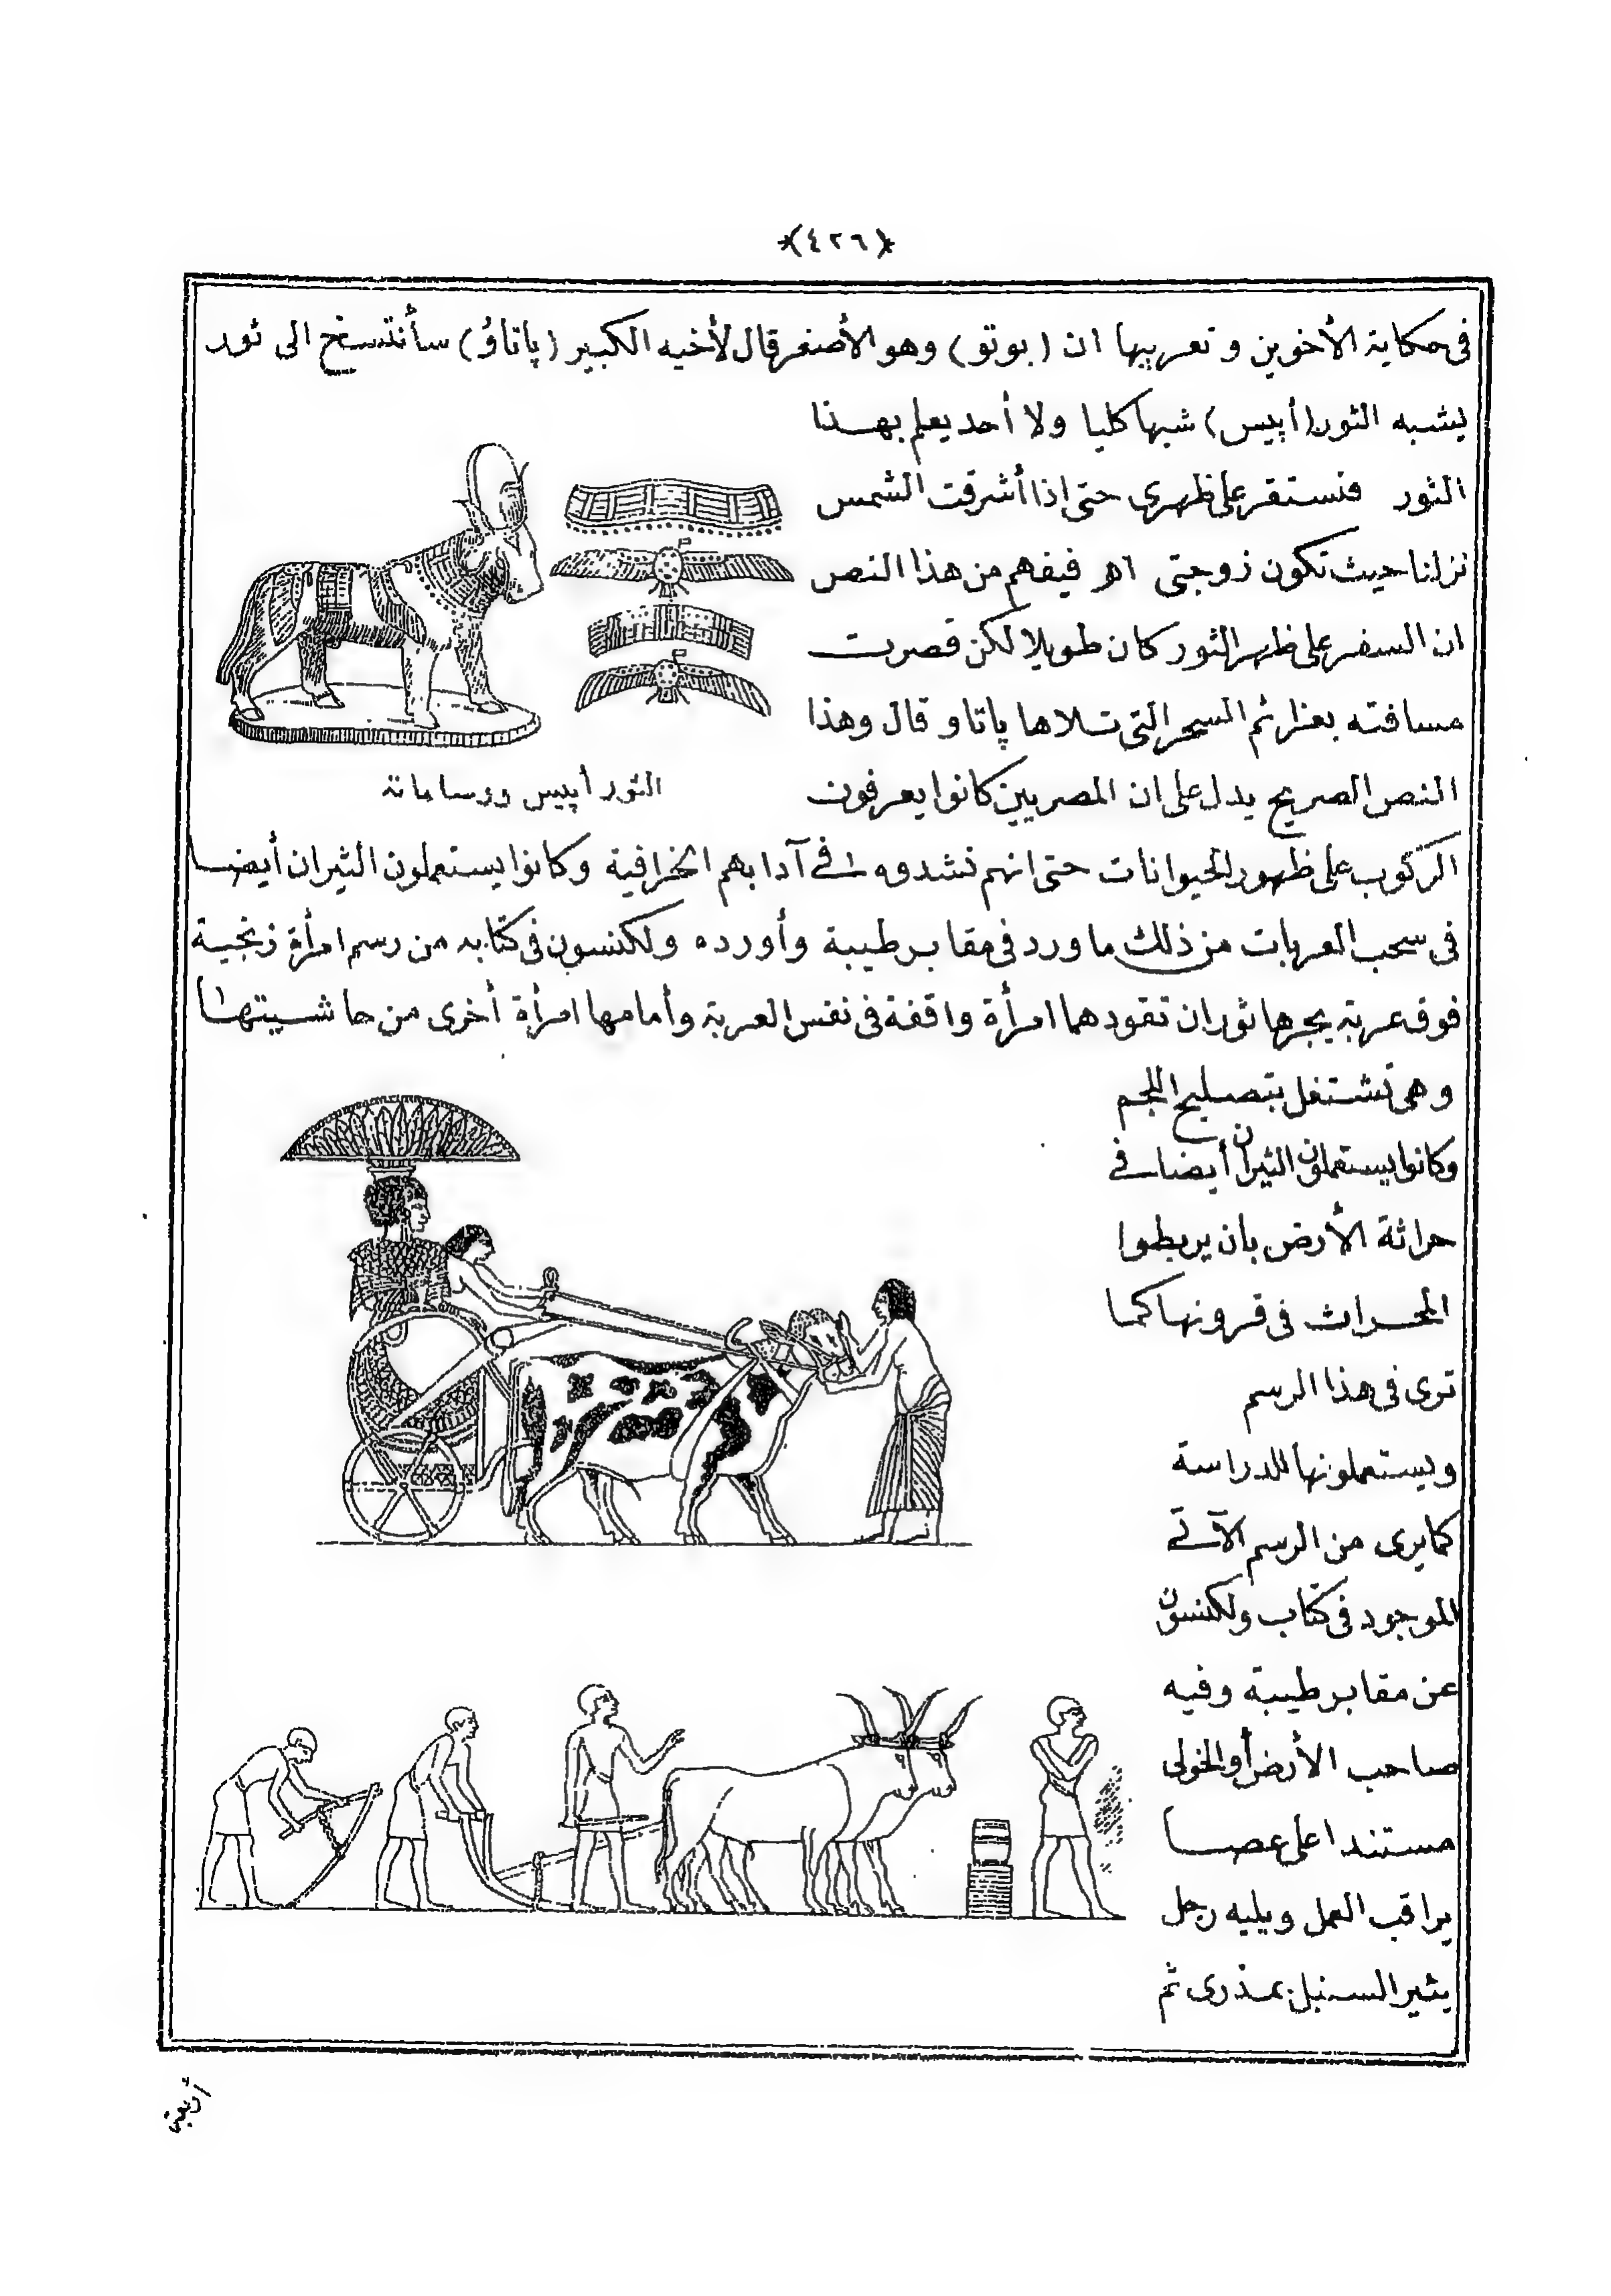 ﴿٤٢٦﴾
فى حكاية الأخوين وتعريبها ان (بوتو) وهو الأصغر قال لأخيه الكبير (پاتاؤ) سأنتسخ الى ثور
يشبه الثور (أپيس) شبها كليا ولا أحد يعلم بهذا
الثور فنستقر على ظهرى حتى اذا أشرقت الشمس
نزلنا حيث تكون زوجتى اه فيفهم من هذا النص
ان السفر على ظهر الثور كان طويلا لكن قصرت
مسافته بعزائم السحر التى تلاها پاتاو قال وهذا
النص الصريح يدل على ان المصريين كانوا يعرفون
الثور أپيس ووساماته
الركوب على ظهور الحيوانات حتى انهم نشدوه فى آدابهم الخرافية وكانوا يستعملون الثيران أيضا
فى سحب العربات من ذلك ما ورد فى مقابر طيبة وأورده ولكنسون فى كتابه من رسم امرأة زنجية
فوق عربة يجرها ثوران تقودهما امرأة واقفة فى نفس العربة وأمامها امرأة أخرى من حاشيتها
وهى تشتغل بتصليح اللجم
وكانوا يستعملون الثيران أيضا فى
حراثة الأرض بان يربطوا
المحراث فى قرونها كما
ترى فى هذا الرسم
ويستعملونها للدراسة
كما يرى من الرسم الآتى
الموجود فى كتاب ولكنسون
عن مقابر طيبة وفيه
صاحب الأرض أو الخولى
مستندا على عصا
يراقب العمل ويليه رجل
يثير السنبل بمذرى ثم